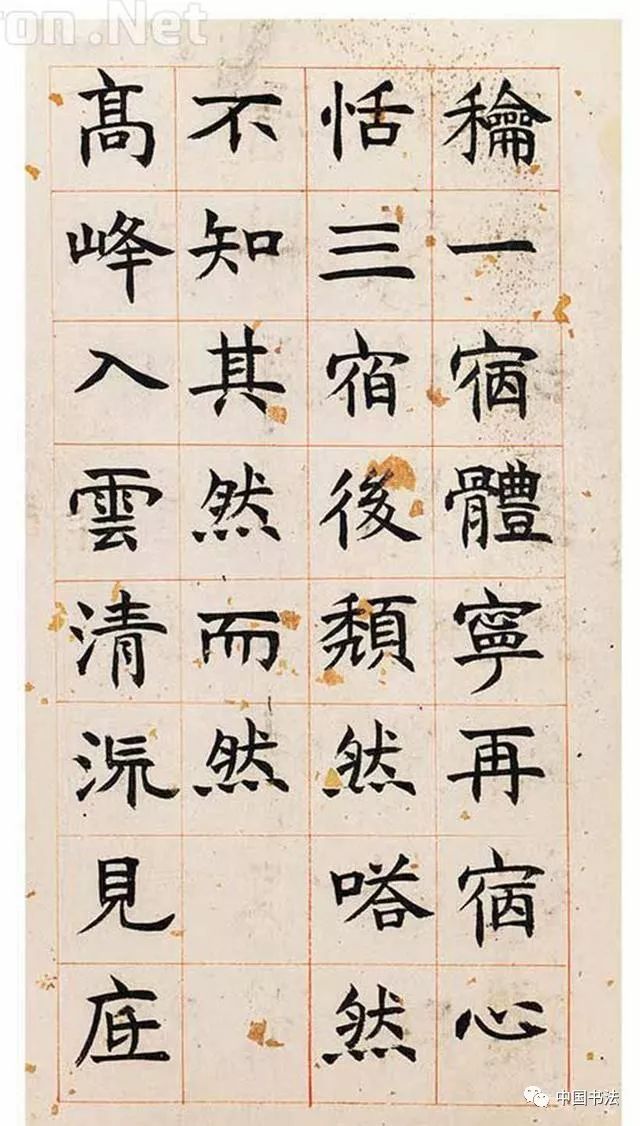 龢一宿體寧再宿心
恬三宿後頽然嗒然
不知其然而然
髙峰入雲清流見底
ron.Net
中国书法